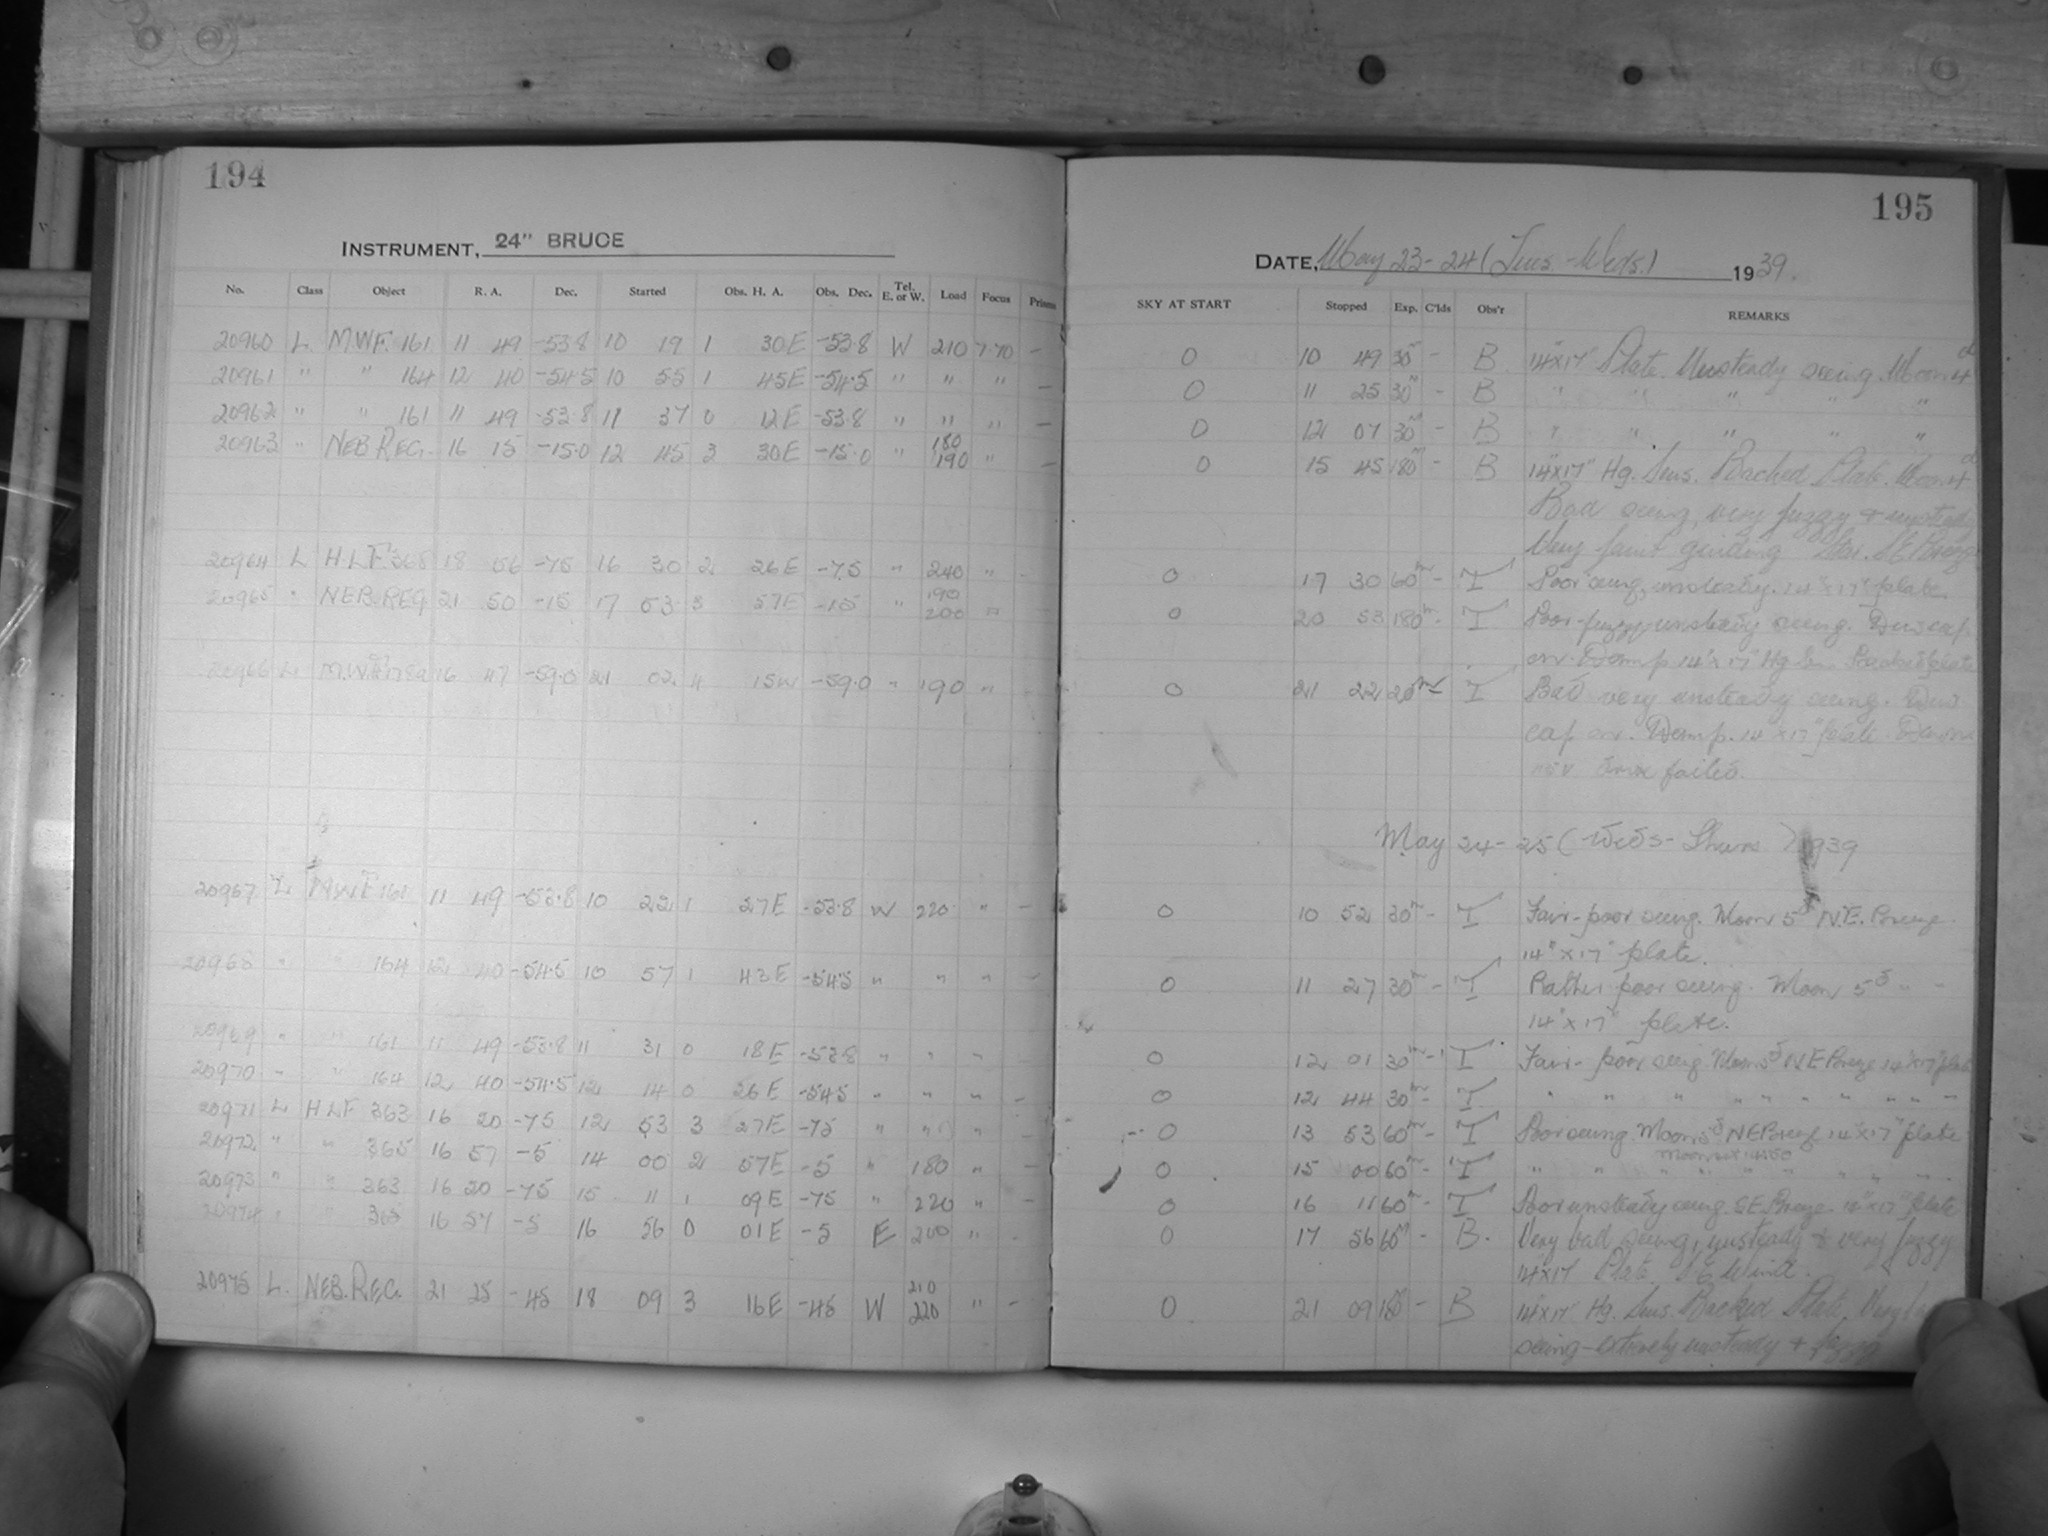 194
INSTRUMENT, 24" BRUCE
No. Class Object R. A. Dec. Started Obs. H. A. Obs. Dec. Tel. E. or W. Load Focus Prisms
20960 L M.W.F. 161 11 49 -53.8 10 19 1 30E -53.8 W 210 7.70 -
20961 " " 164 12 40 -54.5 10 55 1 45E -54.5 " " " -
20962 " " 161 11 49 -53.8 11 37 0 12E -53.8 " " " -
20963 " NEB. REG. 16 15 -15.0 12 45 3 30E -15.0 " 180 190 " -
20964 L H.L.F. 368 18 56 -75 16 30 2 26E -75 " 240 " -
20965 " NEB. REG 21 50 -15 17 53 3 57E -15 " 190 200 " -
20966 L M.W.F. 16 47 -59.0 21 02 4 15W -59.0 " 190 " -
20967 L M.W.F 161 11 49 -53.8 10 22 1 27E -53.8 W 220 " -
20968 " " 164 12 40 -54.5 10 57 1 43E -54.5 " " " -
20969 " " 161 11 49 -53.8 11 31 0 18E -53.8 " " " -
20970 " " 164 12 40 -54.5 12 14 0 26E -54.5 " " " -
20971 L HLF 363 16 20 -75 12 53 3 27E -75 " " " -
20972 " " 365 16 57 -5 14 00 2 57E -5 " 180 " -
20973 " " 363 16 20 -75 15 11 1 09E -75 " 220 " -
20974 " " 365 16 57 -5 16 56 0 01E -5 E 200 " -
20975 L. NEB. REG. 21 25 -45 18 09 3 16E -45 W 210 220 " -
195
DATE, May 23-24 (Tues.-Weds.) 1939.
SKY AT START Stopped Exp. C'lds Obs'r REMARKS
0 10 49 30m - B 14"x17" Plate. Unsteady seeing. Moon 4d
0 11 25 30m - B " " " " "
0 12 07 30m - B " " " " "
0 15 45 180m - B 14"x17" Hg. Sens. Backed Plate. Moon 4d
Bad seeing, very fuzzy & unsteady
Very faint guiding star. SE Breeze
0 17 30 60m - T Poor seeing, unsteady. 14"x17" plate.
0 20 53 180m - T Poor-fuzzy, unsteady seeing. Dewcap
on. Damp. 14"x17" Hg Sen. Backed plate
0 21 22 20m - T Bad very unsteady seeing. Dew
cap on. Damp. 14"x17" plate. Dawn
failed.
May 24-25 (Weds-Thurs) 1939
0 10 52 30m - T Fair-poor seeing. Moon 5d N.E. Breeze.
14"x17" plate.
0 11 27 30m - T Rather poor seeing. Moon 5d " "
14"x17" plate.
0 12 01 30m - T Fair-poor seeing Moon 5d NE Breeze 14"x17" plate
0 12 44 30m - T " " " " " " " " "
0 13 53 60m - T Poor seeing. Moon 5d NE Breeze 14"x17" plate
0 15 00 60m - T " " " " " " " " "
0 16 11 60m - T Poor unsteady seeing. SE. Breeze. 14"x17" plate
0 17 56 60m - B. Very bad seeing, unsteady & very fuzzy
14x17" Plate. SE Wind.
0 21 09 180m - B 14"x17" Hg. Sens. Backed Plate. Very
seeing - extremely unsteady & fuzzy